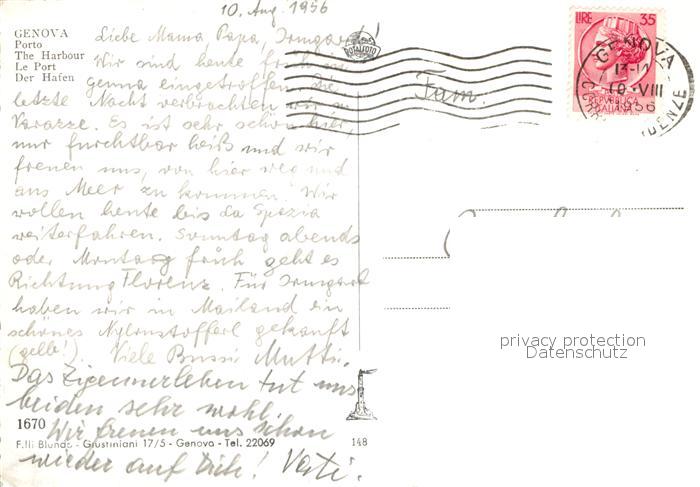 10. Aug. 1956
GENOVA
Porto
The Harbour
Le Port
Der Hafen
Liebe Mama Papa, Irmgard!
Wir sind heute früh in
Genua eingetroffen. Die
letzte Nacht verbrachten wir in
Varazze. Es ist sehr schön hier,
nur furchtbar heiß und wir
freuen uns, von hier weg und
ans Meer zu kommen. Wir
wollen heute bis La Spezia
weiterfahren. Sonntag abends
oder Montag früh geht es
Richtung Florenz. Für Irmgard
haben wir in Mailand ein
schönes Nylonstofferl gekauft
(gelb!). Viele Bussi Mutti.
Das Zigeunerleben tut uns
beiden sehr wohl.
Wir freuen uns schon
wieder auf Dich! Vati.
1670
F.lli Giustiniani 17/5 - Genova - Tel. 22069
148
ROTALFOTO
Fam.
LIRE 35
REPVBBLICA
ITALIANA
GENOVA
13-14
10-VIII
1956
privacy protection
Datenschutz